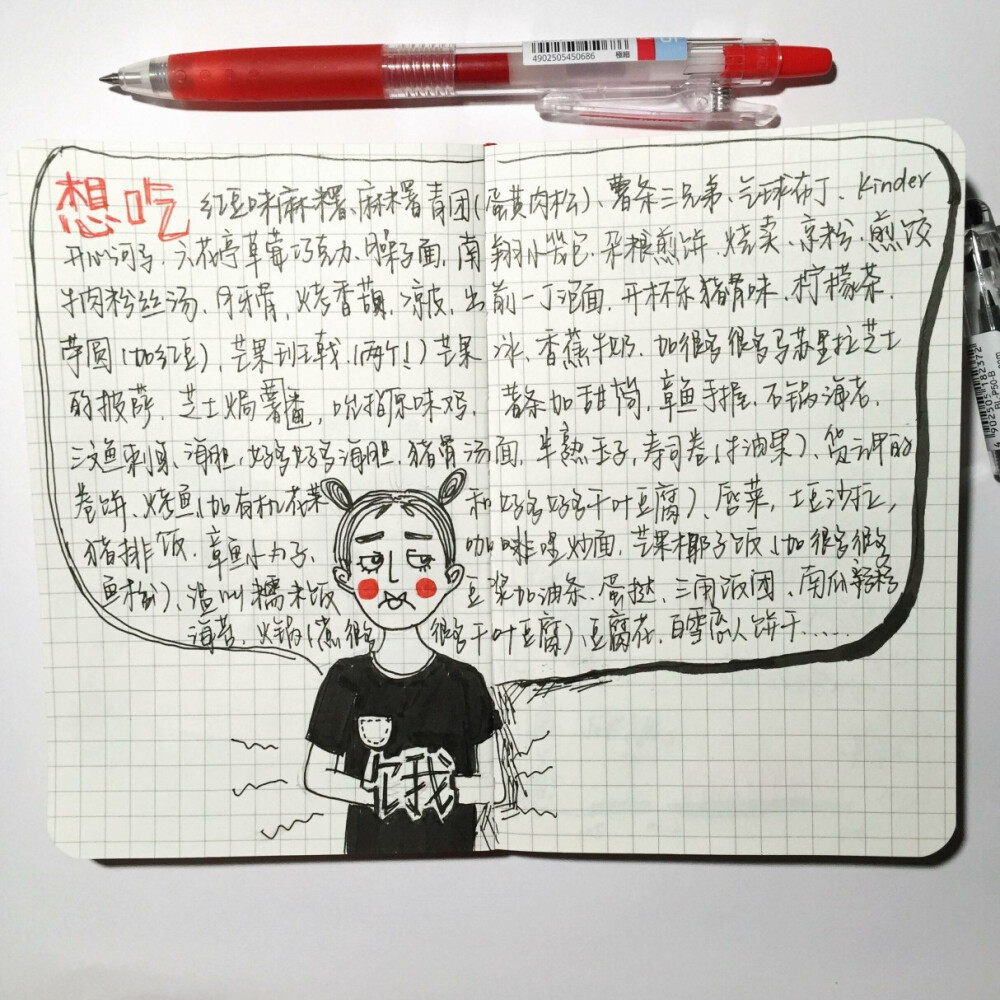 4902505450686
極細
想吃 红豆味麻糬、麻糬青团(蛋黄肉松)、薯条三兄弟、气球布丁、Kinder
开心河子、六花亭草莓巧克力、臊子面、南翔小笼包、杂粮煎饼、烧卖、凉粉、煎饺
牛肉粉丝汤、月牙骨、烤香菇、凉皮、出前一丁泡面、开杯乐猪骨味、柠檬茶、
芋圆(加红豆)、芒果班戟(两个!)芒果冰、香蕉牛奶、加很多很多马苏里拉芝士
的披萨、芝士焗薯番、吮指原味鸡、薯条加甜筒、章鱼手握、石锅海老、
三文鱼刺身、海胆、好多好多海胆、猪骨汤面、半熟玉子、寿司卷(牛油果)、
卷饼、烤鱼(加有机花菜和好多好多千叶豆腐)、唇菜、土豆沙拉,
猪排饭、章鱼小丸子、咖喱炒面、芒果椰子饭(加很多很多
鱼松)、温州糯米饭 豆浆加油条、蛋挞、三角饭团、南瓜
海苔、火锅(煮很多很多千叶豆腐)、豆腐花、白雪恋人饼干……
饿